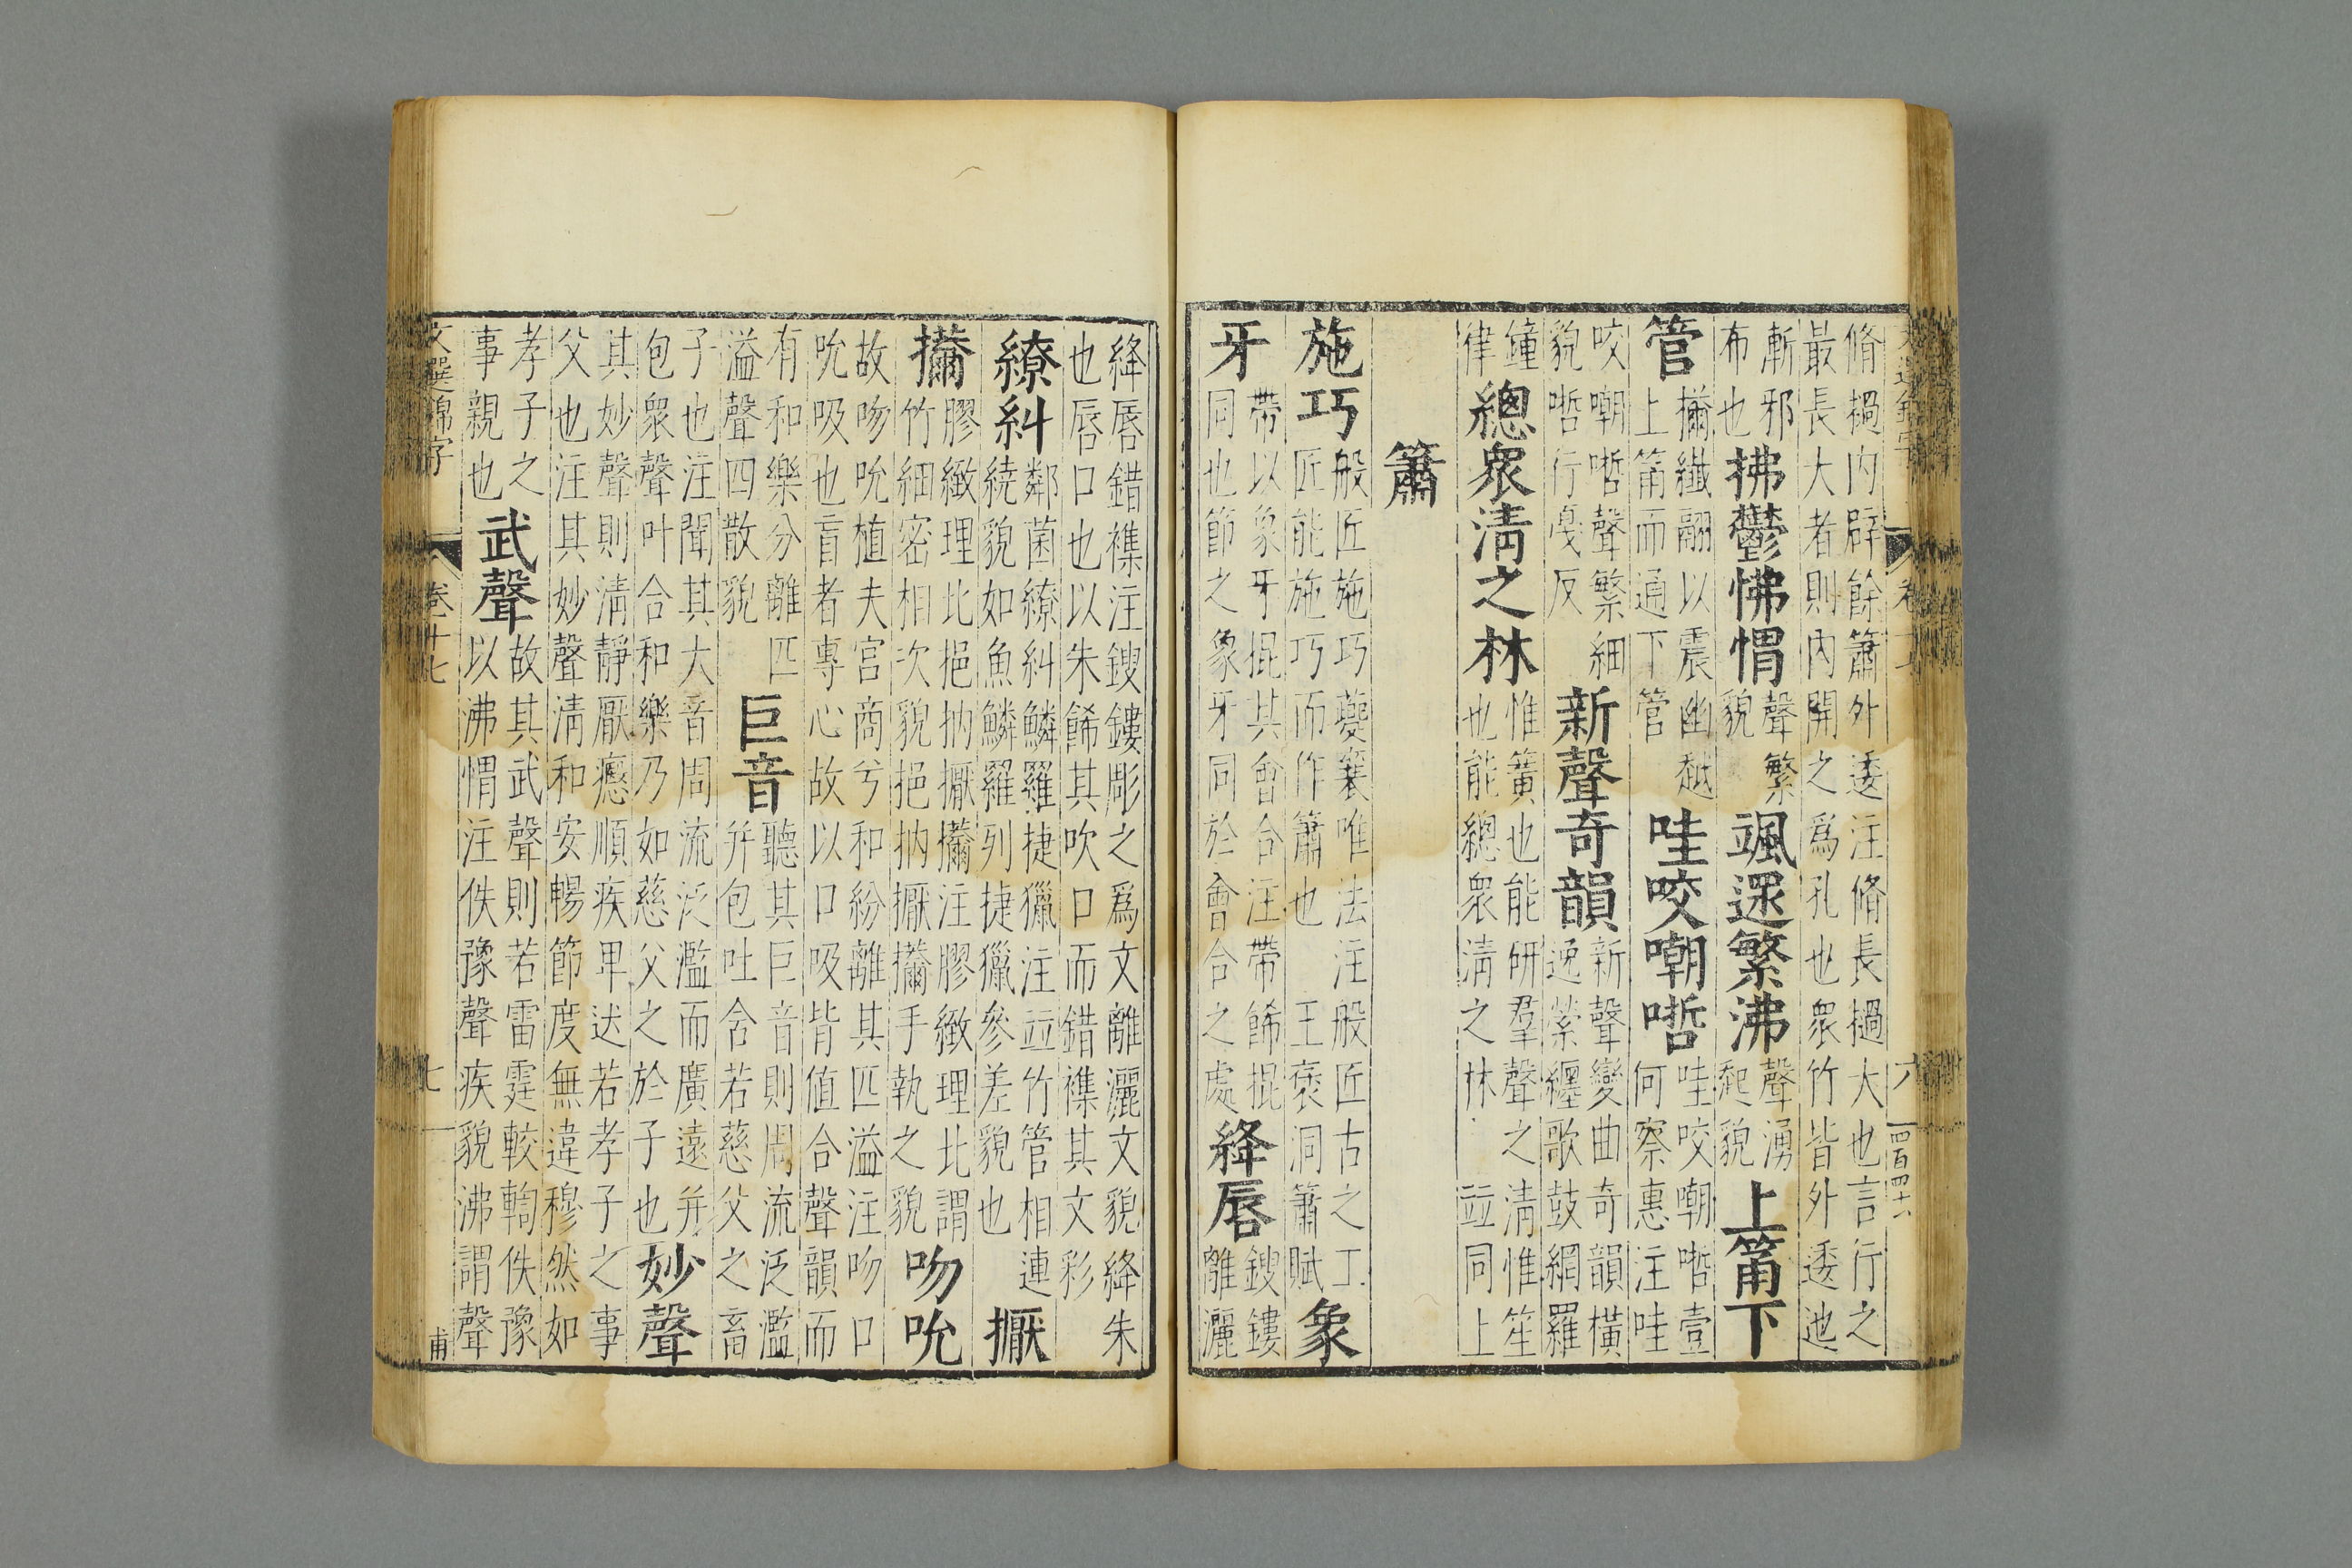 脩檛内辟餘簫外逶注脩長檛大也言行之
最長大者則内開之爲孔也衆竹皆外逶迆
漸邪
布也
拂鬱怫愲
聲繁
貌
颯遝繁沸
聲湧
起貌
上筩下
管
擟纖翮以震幽越
上筩而通下管
哇咬嘲哳
哇咬嘲哳壹
何察惠注哇
咬嘲哳聲繁細
貌哳行戛反
新聲奇韻
新聲變曲奇韻橫
逸縈纏歌鼓網羅
鐘
律
總衆淸之林
惟簧也能硏羣聲之淸惟笙
也能總衆淸之林 竝同上
簫
施巧
般匠施巧夔襄唯法注般匠古之工
匠能施巧而作簫也 王褒洞簫賦
象
牙
帶以象牙掍其會合注帶餙掍
同也節之象牙同於會合之處
絳唇
鎪鏤
離灑
六
四百四十六
絳唇錯襍注鎪鏤彫之爲文離灑文貌絳朱
也唇口也以朱餙其吹口而錯襍其文彩
繚糾
鄰菌繚糾鱗羅捷獵注竝竹管相連
繞貌如魚鱗羅列捷獵參差貌也
擫
擟
膠緻理比挹抐擫擟注膠緻理比謂
竹細密相次貌挹抐擫擟手執之貌
吻吮
故吻吮植夫宫商兮和紛離其匹溢注吻口
吮吸也盲者專心故以口吸皆値合聲韻而
有和樂分離匹
溢聲四散貌
巨音
聽其巨音則周流泛濫
并包吐含若慈父之畜
子也注聞其大音周流泛濫而廣遠并
包衆聲叶合和樂乃如慈父之於子也
妙聲
其妙聲則淸靜厭順疾卑迏若孝子之事
父也注其妙聲淸和安暢節度無違穆然如
孝子之
事親也
武聲
故其武聲則若雷霆較輷佚豫
以沸愲注佚豫聲疾貌沸謂聲
文選錦字
卷十七
七
甫